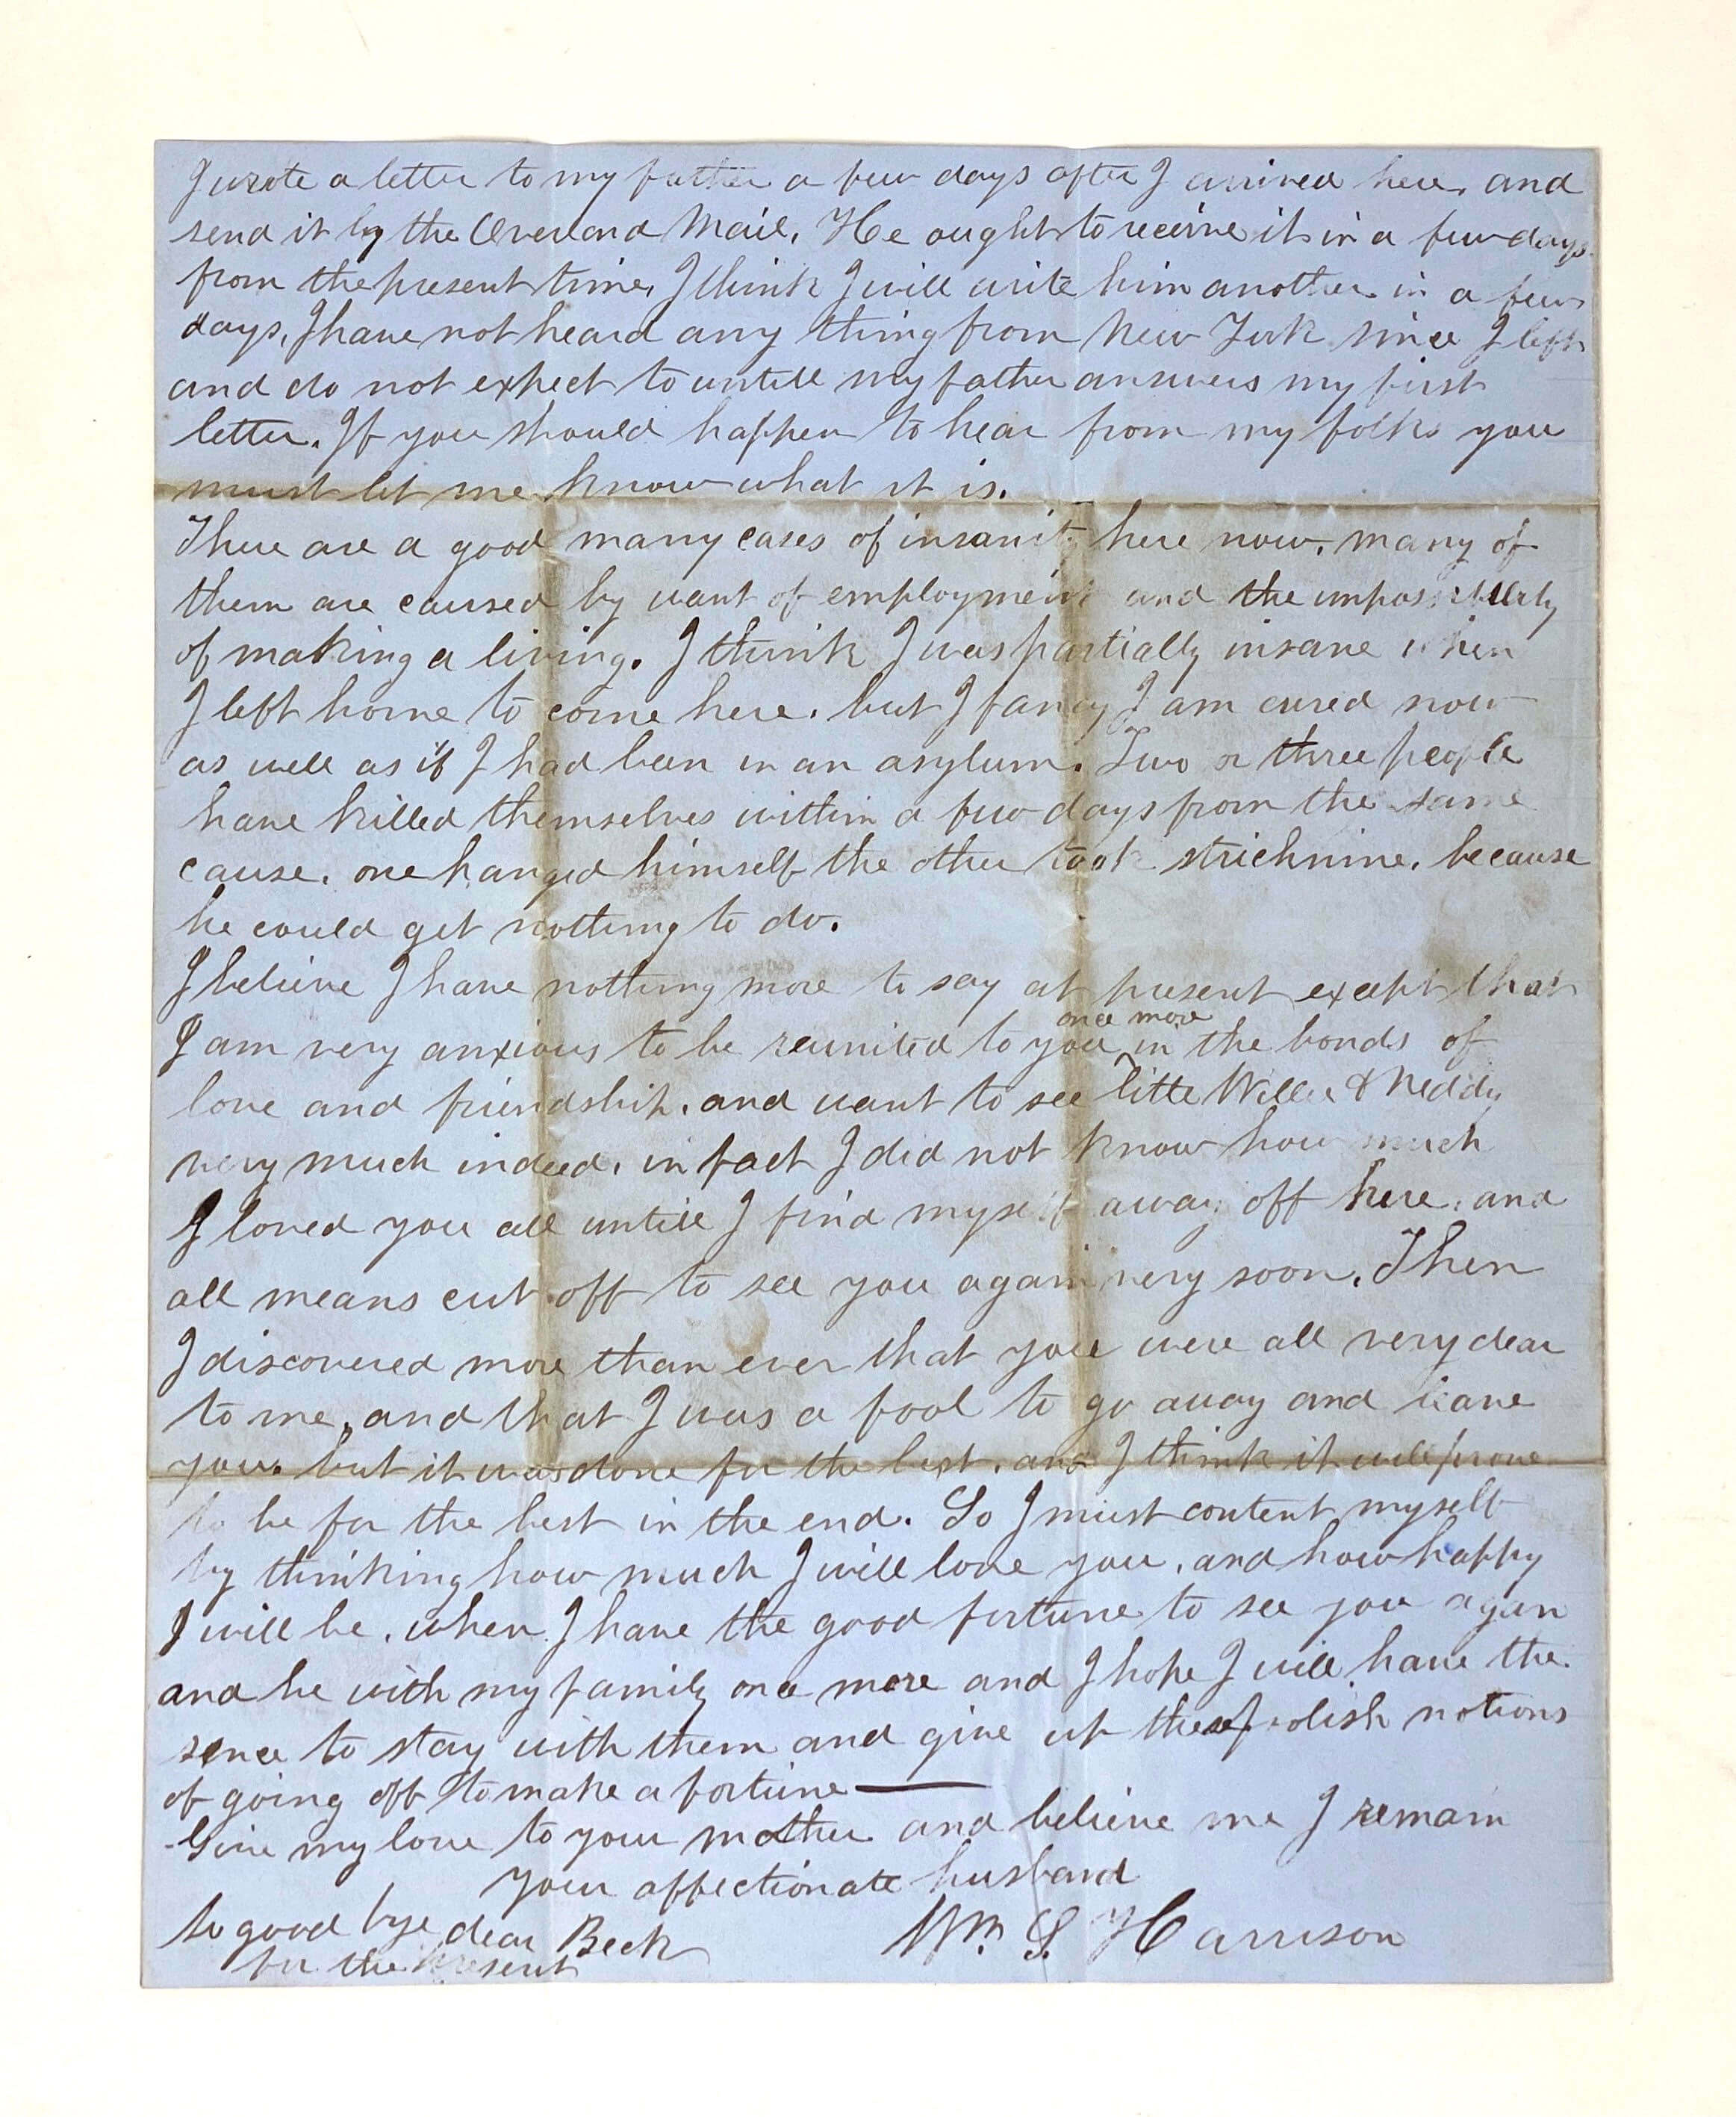 I wrote a letter to my father a few days after I arrived here, and
send it by the Overland Mail, He ought to receive it in a few days
from the present time, I think I will write him another in a few
days, I have not heard any thing from New York since I left
and do not expect to untill my father answers my first
letter. If you should happen to hear from my folks you
must let me know what it is.
There are a good many cases of insanity here now, many of
them are caused by want of employment and the impossibility
of making a living. I think I was partially insane when
I left home to come here, but I fancy I am cured now
as well as if I had been in an asylum. Two or three people
have killed themselves within a few days from the same
cause, one hanged himself the other took strichnine, because
he could get nothing to do.
I believe I have nothing more to say at present except that
I am very anxious to be reunited to you once more in the bonds of
love and friendship, and want to see little Willie & Neddy
very much indeed, in fact I did not know how much
I loved you all untill I find myself away off here, and
all means cut off to see you again very soon, Then
I discovered more than ever that you were all very dear
to me, and that I was a fool to go away and leave
you, but it was done for the best, and I think it will prove
to be for the best in the end. So I must content myself
by thinking how much I will love you, and how happy
I will be, when I have the good fortune to see you again
and be with my family once more and I hope I will have the
sence to stay with them and give up these foolish notions
of going off to make a fortune —
Give my love to your mother and believe me I remain
your affectionate husband
Wm. S. Harrison
So good bye dear Beck
for the present